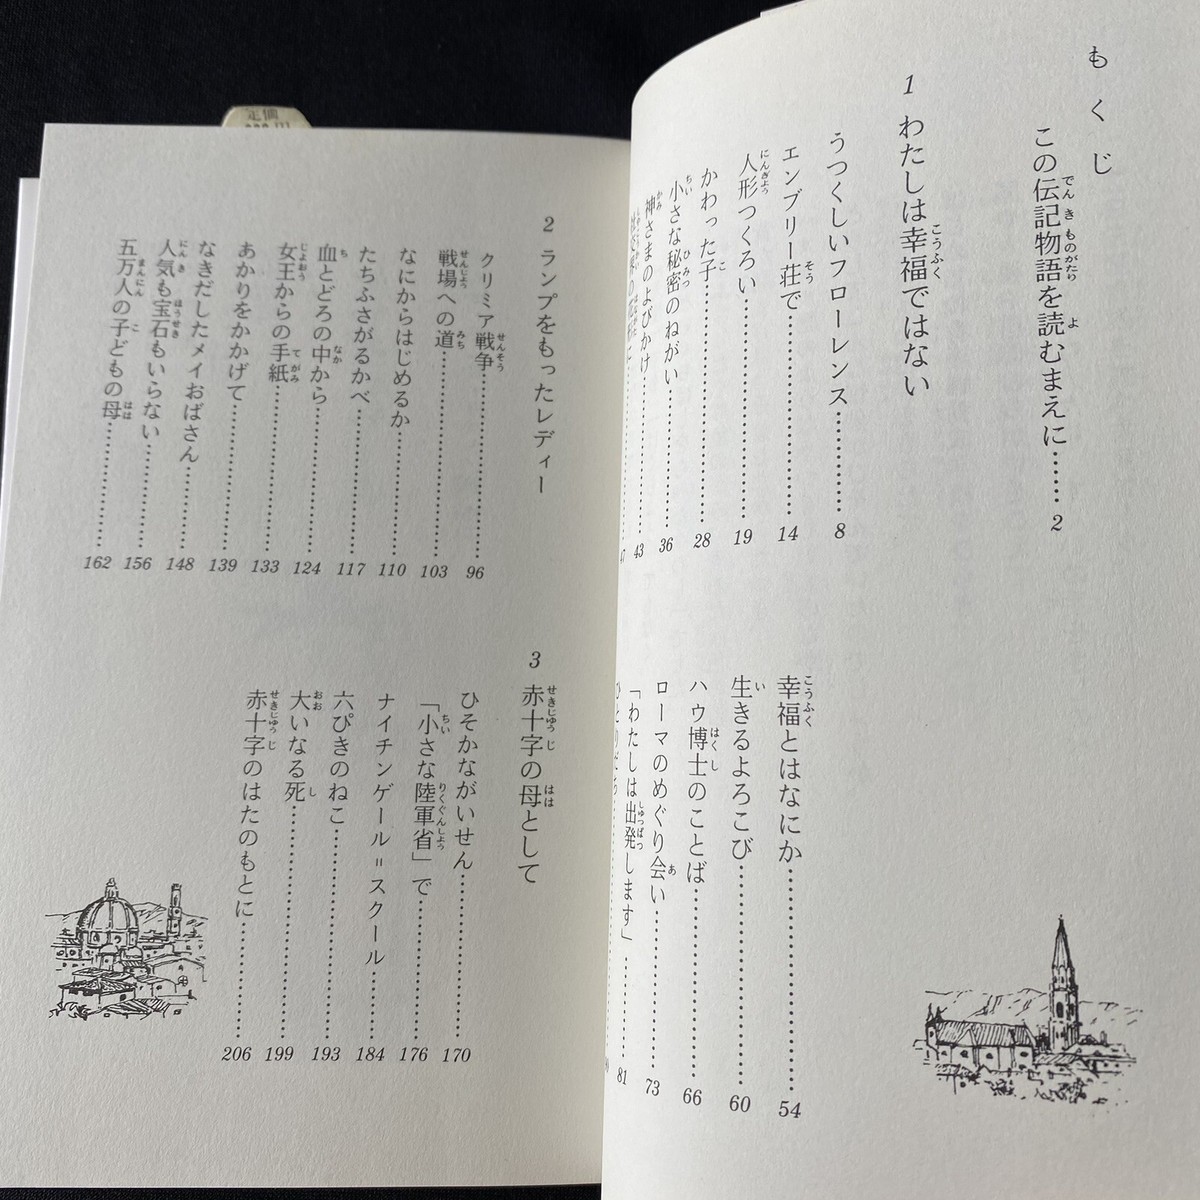 もくじ
この伝記物語を読むまえに…… 2
1 わたしは幸福ではない
うつくしいフローレンス………… 8
エンブリー荘で………… 14
人形つくろい………… 19
かわった子………… 28
小さな秘密のねがい………… 36
神さまのよびかけ………… 43
47
幸福とはなにか………… 54
生きるよろこび………… 60
ハウ博士のことば………… 66
ローマのめぐり会い………… 73
「わたしは出発します」………… 81
ひとりだち
2 ランプをもったレディー
クリミア戦争………… 96
戦場への道………… 103
なにからはじめるか………… 110
たちふさがるかべ………… 117
血とどろの中から………… 124
女王からの手紙………… 133
あかりをかかげて………… 139
なきだしたメイおばさん………… 148
人気も宝石もいらない………… 156
五万人の子どもの母………… 162
3 赤十字の母として
ひそかながいせん………… 170
「小さな陸軍省」で………… 176
ナイチンゲール=スクール………… 184
六ぴきのねこ………… 193
大いなる死………… 199
赤十字のはたのもとに………… 206
定価